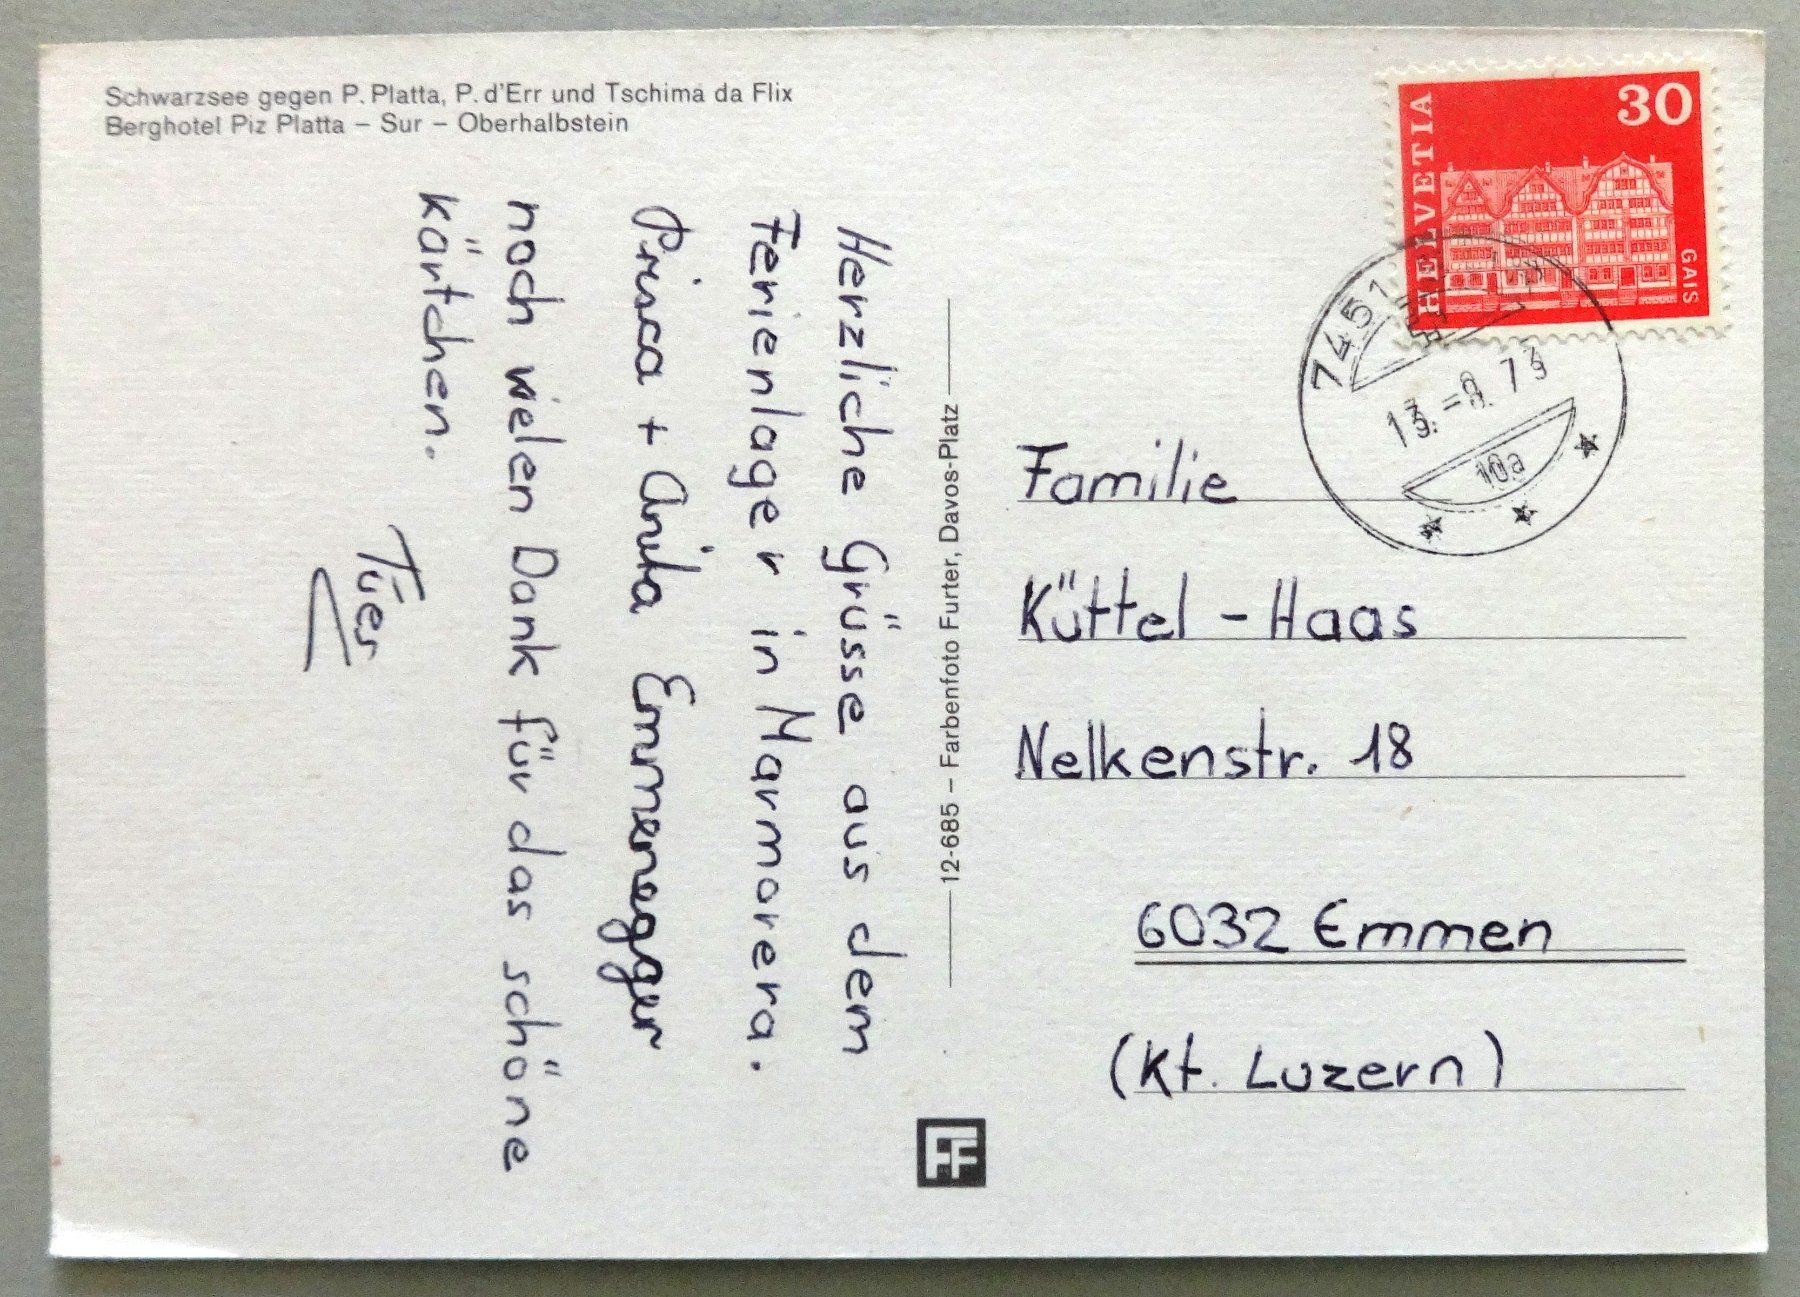 Schwarzsee gegen P. Platta, P. d'Err und Tschima da Flix
Berghotel Piz Platta – Sur – Oberhalbstein
Herzliche Grüsse aus dem
Ferienlager in Marmorera.
Prisca + Anita Emmenegger
noch vielen Dank für das schöne
Kärtchen.
12-685 – Farbenfoto Furter, Davos-Platz
FF
30
HELVETIA
GAIS
7451
73
10a
Familie
Küttel - Haas
Nelkenstr. 18
6032 Emmen
(Kt. Luzern)